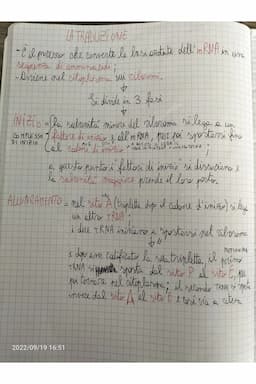 LA TRADUZIONE
- È il processo che converte la base azotata dell'mRNA in una
sequenza di amminoacidi;
- Avviene nel citoplasma sui ribosomi.
Si divide in 3 fasi
INIZIO = la subunità minore del ribosoma si lega a un
COMPLESSO DI INIZIO
fattore di inizio e all'mRNA, per poi spostarsi fino
al codone di inizio
a questo punto i "fattori di inizio" si dissociano e
la subunità maggiore prende il loro posto.
ALLUNGAMENTO = nel sito A (tripletta dopo il codone d'inizio) si lega
un altro tRNA;
i due tRNA iniziano a spostarsi nel ribosoma
e dopo aver codificato la sua tripletta, il primo
tRNA si sposta dal sito P al sito E, per
poi tornare nel citoplasma; il secondo tRNA si sposta
invece dal sito A al sito P e così via a catena
2022/09/19 16:51